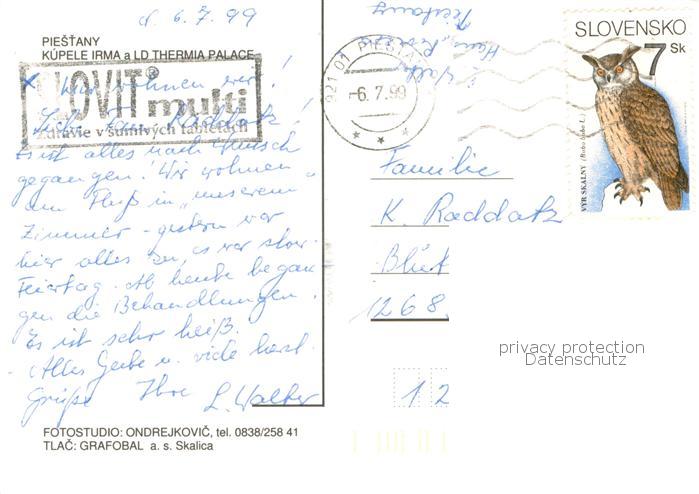 d. 6.7.99
PIEŠŤANY
KÚPELE IRMA a LD THERMIA PALACE
x hier wohnen wir!
LOVIT® multi
zdravie v šumivých tabletách
Raddatz!
Es ist alles nach Wunsch
gegangen. Wir wohnen
am Fluß in „unserem"
Zimmer - gestern war
hier alles zu, es war slow.
Feiertag. Ab heute began
gen die Behandlungen.
Es ist sehr heiß.
Alles Gute u. viele herzl.
Grüße Ihre L. Walter
FOTOSTUDIO: ONDREJKOVIČ, tel. 0838/258 41
TLAČ: GRAFOBAL a. s. Skalica
921 01 PIEŠŤANY
-6.7.99
SLOVENSKO
7 Sk
VÝR SKALNÝ (Bubo bubo L.)
Familie
K. Raddatz
Blüt
1268
12
privacy protection
Datenschutz